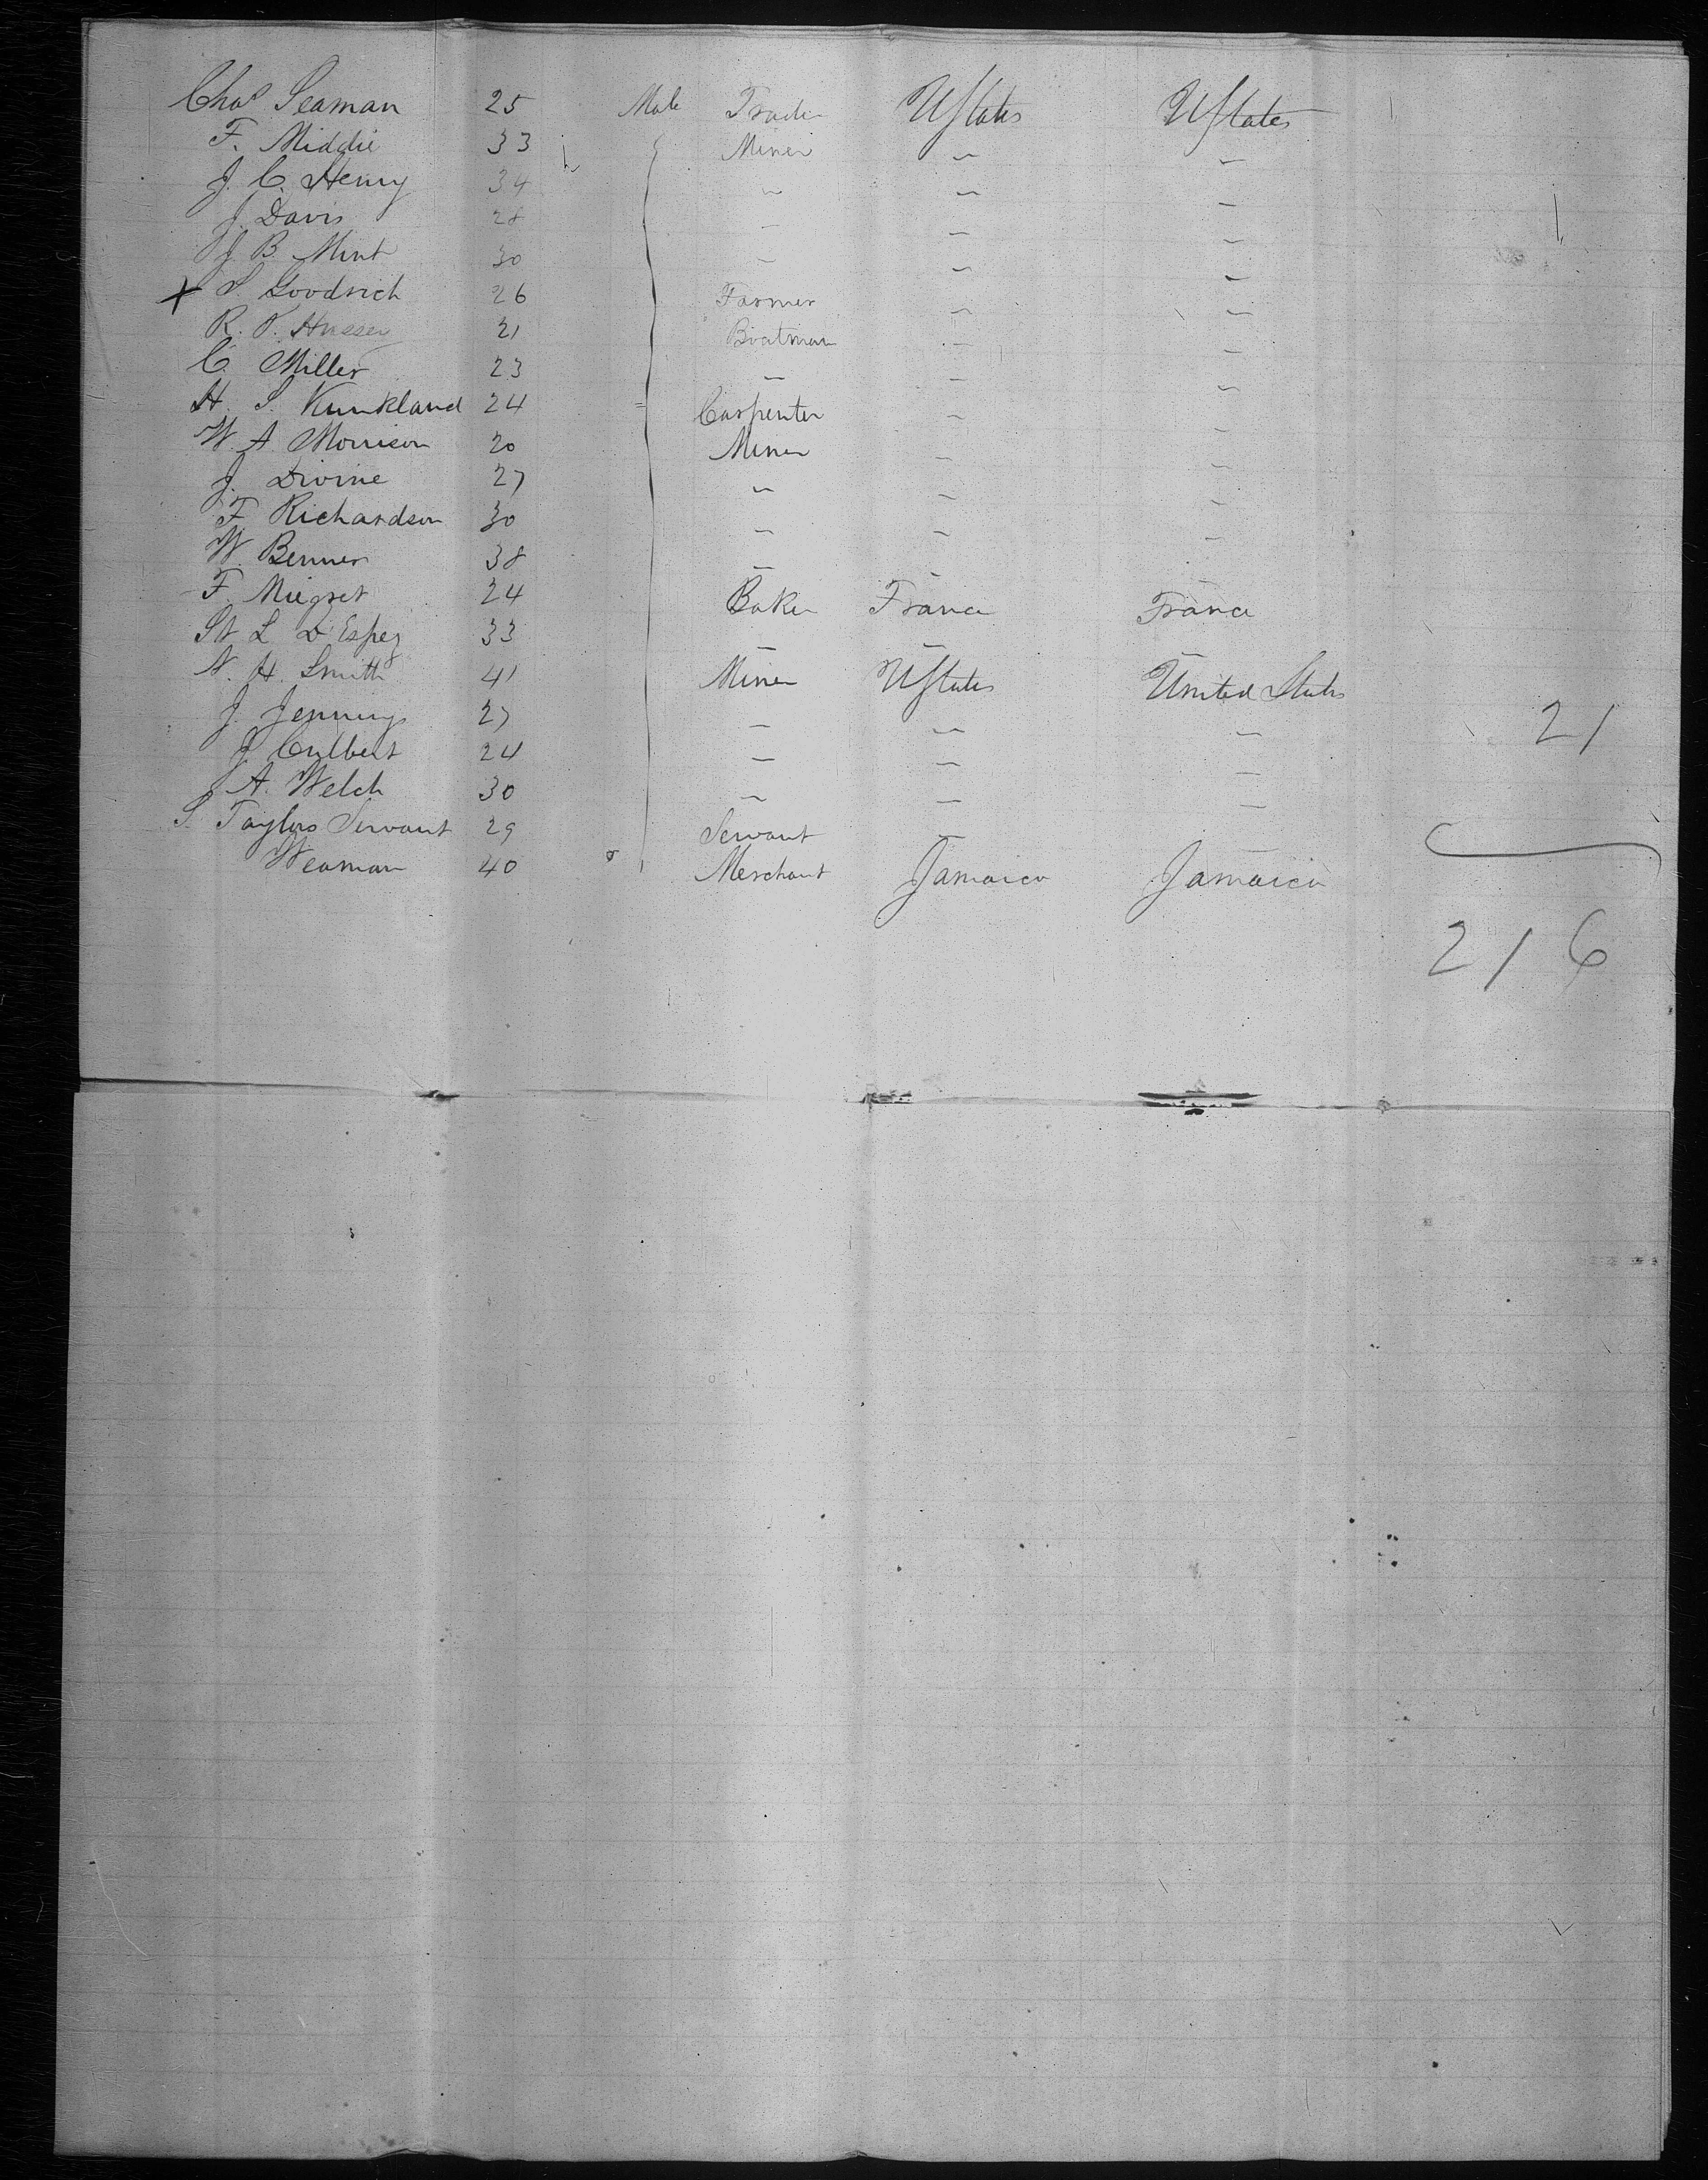 Chas Seaman 25 Male Trader UStates UStates
F. Middie 33 Miner " "
J. C. Henry 34 " " "
J. Davis 28 " " "
J. B. Mint 30 " " "
x S. Goodrich 26 Farmer " "
R. T. Hussey 21 Boatman " "
C. Miller 23 " " "
H. S. Kunkland 24 Carpenter " "
W. A. Morrison 20 Miner " "
J. Divine 27 " " "
F. Richardson 30 " " "
W. Benner 38 " " "
F. 24 Baker France France
St L D'Espez 33 " " "
N. H. Smith 41 Miner UStates United States
J. Jennings 27 " " "
J. Culbert 24 " " "
A. Welch 30 " " "
S. Taylors Servant 29 Servant " "
Weaman 40 Merchant Jamaica Jamaica
21
216